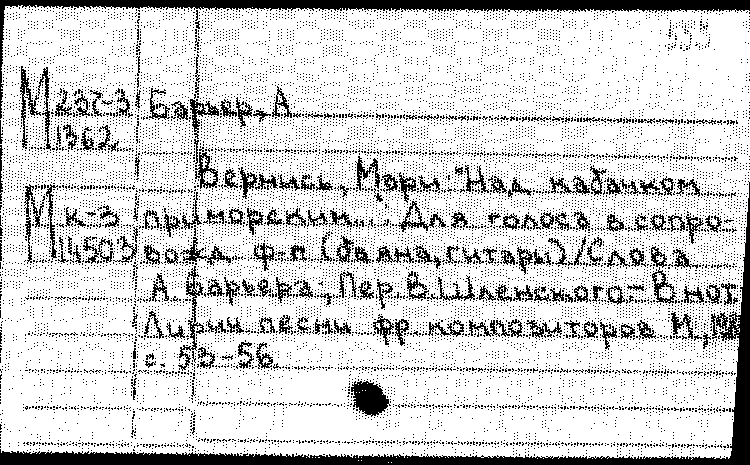 555
М 237-3 Барьер, А
1362
Вернись, Мэри. "Над кабачком
М к-3 приморским...": Для голоса в сопро-
14503 вожд. ф-п (баяна, гитары)/Слова
А Барьера; Пер. В. Шленского.- В нот.
Лирич песни фр. композиторов М.,
с. 53-56